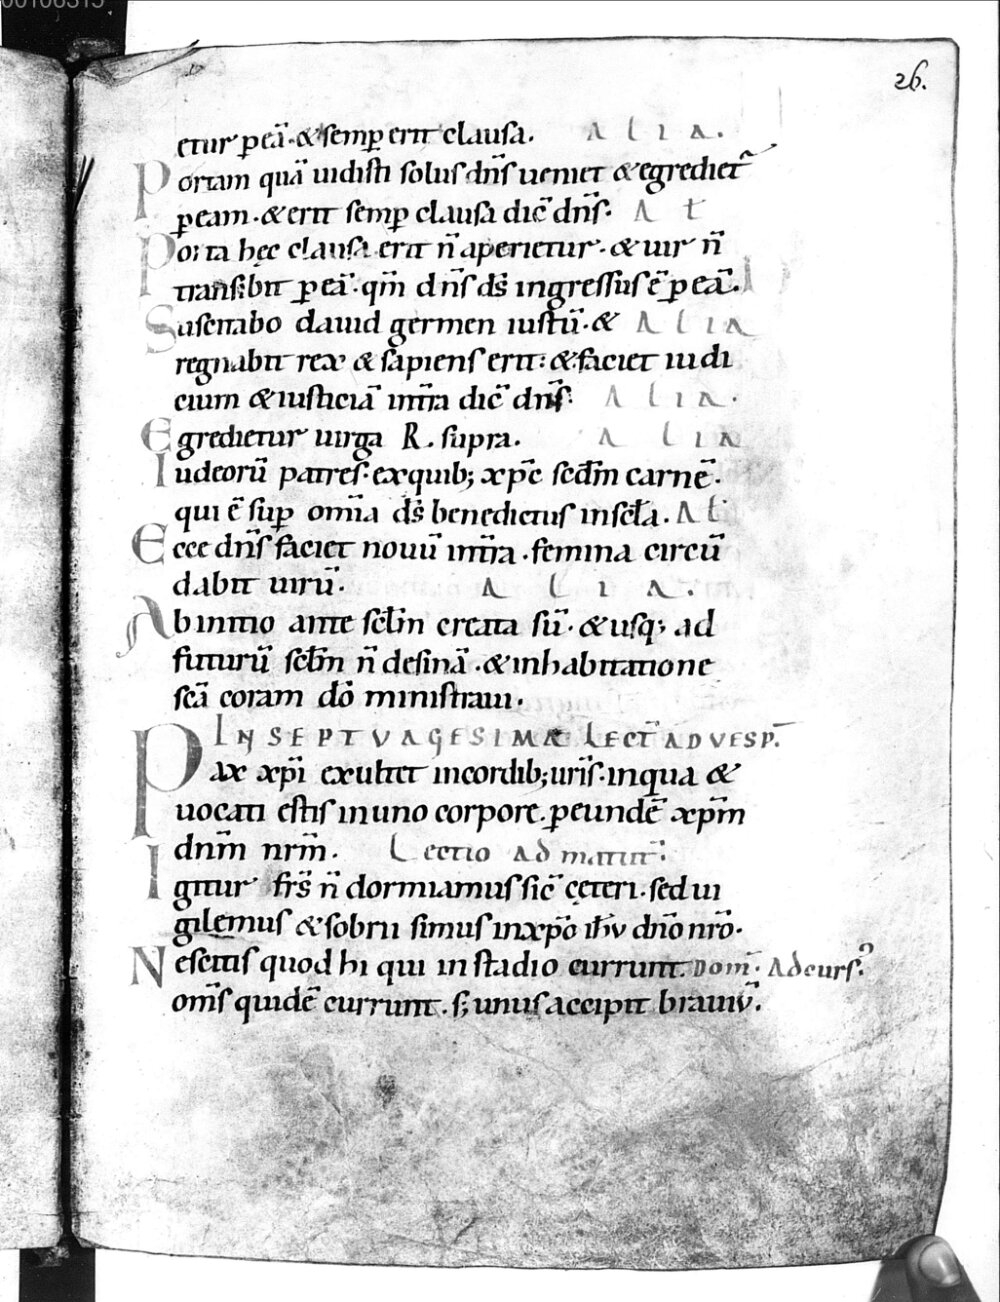 26.
etur p eā·& semp erit clausa. ALIA.
Portam quā uidisti solus dn̄s ueniet & egrediet̄
p eam·& erit semp clausa dic̄ dn̄s· Al
Porta hęc clausa erit n̄ aperietur·& uir n̄
transibit p eā·qm̄ dn̄s ds̄ ingressus ē p eā. Al
Suscitabo dauid germen iustū·& ALIA
regnabit rex & sapiens erit: & faciet iudi
cium & iusticiā int̄ra dic̄ dn̄s: ALIA.
Egredietur uirga R. supra. ALIA
Iudeorū patres·ex quib; xp̄c scdm̄ carnē.
qui ē sup om̄ia ds̄ benedictus in scl̄a. Al
Ecce dn̄s faciet nouū int̄ra. femina circū
dabit uirū. ALIA.
Ab initio ante scl̄m creata sū·& usq; ad
futurū scl̄m n̄ desinā·& inhabitatione
sc̄ā coram dō ministraui.
IN SEPTVAGESIMÆ LECT̄ AD VESP̄.
Pax xp̄i exultet incordib; uris̄·inqua &
uocati estis inuno corpore. p eundē xp̄m
dnm̄ nrm̄. Lectio ad matut̄:
Igitur frs̄ n̄ dormiamus sic̄ cęteri·sed ui
gilemus & sobrii simus inxp̄o ih̄v dn̄o nr̄o·
Nescitis quod hi qui in stadio currunt. Dom̄· Ad curs̄
om̄s quidē currunt·s; unus accipit brauiv̄.